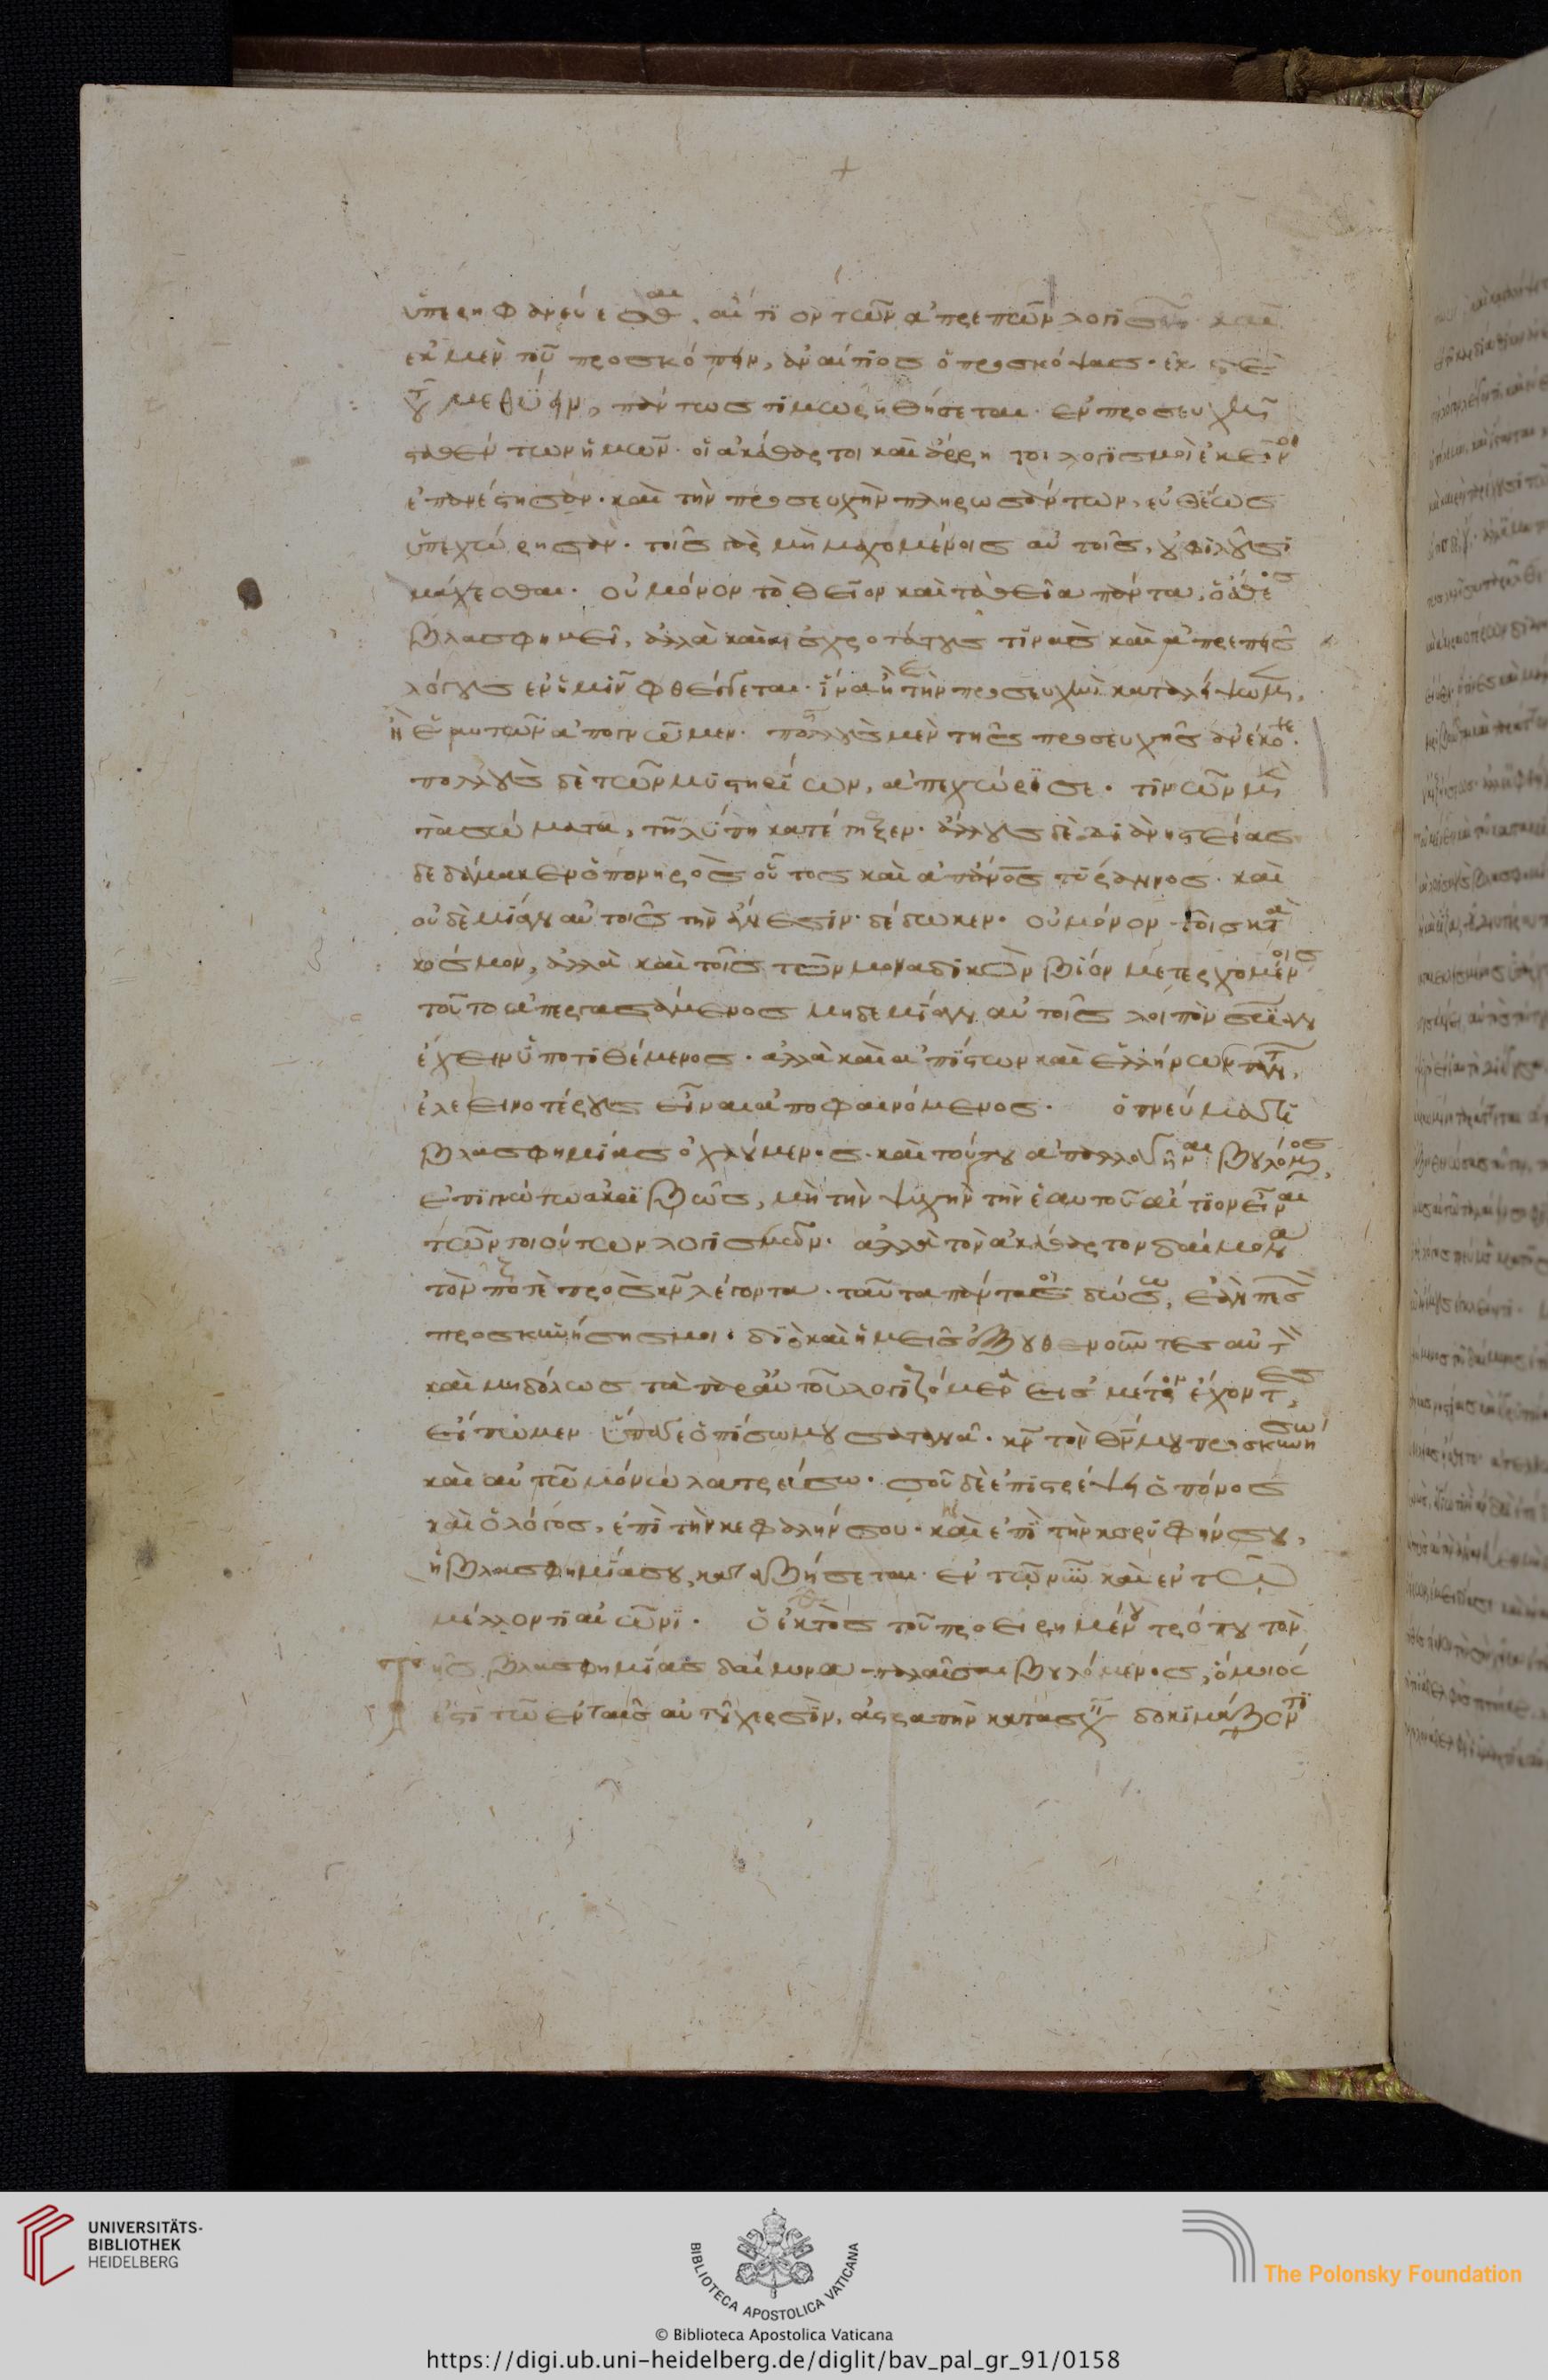 ὑπερηφανεύεσθαι, αἴτιον τῶν ἀπρεπῶν λογισμῶν· καὶ
ἐκ μὲν τοῦ προσκόπτειν, ἀναίτιος ὁ προσκόψας· ἐκ δὲ
τοῦ μεθύειν, πάντως τιμωρηθήσεται· ἐν προσευχῇ
σταθέντων ἡμῶν· οἱ ἀκάθαρτοι καὶ ἄρρητοι λογισμοὶ ἐκεῖνοι
ἐπανέστησαν· καὶ τὴν προσευχὴν πληρωσάντων, εὐθέως
ὑπεχώρησαν· τοῖς γὰρ μὴ μαχομένοις αὐτοῖς, οὐ φιλοῦσι
μάχεσθαι· οὐ μόνον τὸ θεῖον καὶ τὰ θεῖα πάντα, ὁ ἄθεος
βλασφημεῖ, ἀλλὰ καὶ αἰσχροτάτους τινὰς καὶ ἀπρεπεῖς
λόγους ἐν ἡμῖν φθέγγεται· ἵνα ἢ τὴν προσευχὴν καταλείψωμεν,
ἢ ἑαυτῶν ἀπογνῶμεν· πολλοὺς μὲν τῆς προσευχῆς ἀνέκοψε·
πολλοὺς δὲ τῶν μυστηρίων, ἀπεχώρισε· τινῶν μὲν
τὰ σώματα, τῇ λύπῃ κατέτηξεν· ἄλλους δὲ διὰ νηστείας
δεδάμακεν ὁ πονηρὸς οὗτος καὶ ἀπάνθρωπος τύραννος· καὶ
οὐδεμίαν αὐτοῖς τὴν ἄνεσιν δέδωκεν· οὐ μόνον τοῖς κατὰ
κόσμον, ἀλλὰ καὶ τοῖς τὸν μοναδικὸν βίον μετερχομένοις
τοῦτο ἀπεργασάμενος μηδεμίαν αὐτοῖς λοιπὸν σωτηρίαν
ἔχειν ὑποτιθέμενος· ἀλλὰ καὶ ἀπίστων καὶ ἑλλήνων πάντων,
ἐλεεινοτέρους εἶναι ἀποφαινόμενος· ὁ πνεύματι
βλασφημίας ὀχλούμενος καὶ τούτου ἀπαλλαγῆναι βουλόμενος,
ἐπιγνώτω ἀκριβῶς, μὴ τὴν ψυχὴν τὴν ἑαυτοῦ αἴτιον εἶναι
τῶν τοιούτων λογισμῶν· ἀλλὰ τὸν ἀκάθαρτον δαίμονα
τὸν ποτὲ πρὸς κν λέγοντα· ταῦτα πάντα σοι δώσω, ἐὰν πεσὼν
προσκυνήσῃς μοι· διὸ καὶ ἡμεῖς ἐξουθενοῦντες αὐτὸν
καὶ μηδόλως τὰ παρ' αὐτοῦ λογιζόμενα εἰς μέτρον ἔχοντες,
εἴπωμεν ὕπαγε ὀπίσω μου σατανᾶ· κν τὸν θν μου προσκυνήσω
καὶ αὐτῷ μόνῳ λατρεύσω· σοῦ δὲ ἐπιστρέψῃ ὁ πόνος
καὶ ὁ λόγος, ἐπὶ τὴν κεφαλήν σου· καὶ ἐπὶ τὴν κορυφήν σου,
ἡ βλασφημία σου καταβήσεται· ἐν τῷ νῦν καὶ ἐν τῷ
μέλλοντι αἰῶνι· ὁ ἐκτὸς τοῦ προειρημένου τρόπου τὸν
τῆς βλασφημίας δαίμονα παλαῖσαι βουλόμενος, ὅμοιός
ἐστι τῷ ἐν ταῖς αὐτοῦ χερσὶν, ἀστραπὴν κατασχεῖν δοκιμάζοντι
UNIVERSITÄTS-
BIBLIOTHEK
HEIDELBERG
BIBLIOTECA APOSTOLICA VATICANA
The Polonsky Foundation
© Biblioteca Apostolica Vaticana
https://digi.ub.uni-heidelberg.de/diglit/bav_pal_gr_91/0158